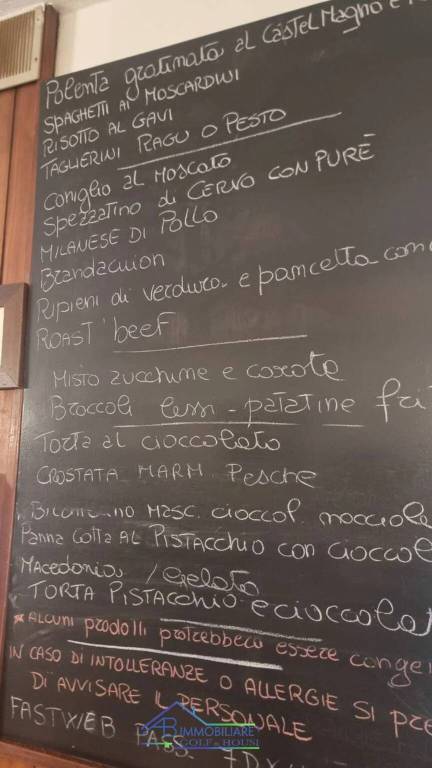 Polenta gratinata al CastelMagno e
SPAGHETTI AI MOSCARDINI
RISOTTO AL GAVI
TAGLIERINI RAGU O PESTO
Coniglio al Moscato
Spezzatino di CERVO CON PURÈ
MILANESE DI POLLO
Brandacuion
Ripieni di verdura e pancetta con
ROAST beef
MISTO zucchine e carote
Broccoli lessi - patatine fri
Torta al cioccolato
CROSTATA MARM Pesche
Masc. cioccol. nocciole
Panna Cotta AL PISTACCHIO con cioccol
Macedonia /Gelato
TORTA PISTACCHIO e cioccolat
* ALCUNI prodotti potrebbero essere congel
IN CASO DI INTOLLERANZE O ALLERGIE SI PRE
DI AVVISARE IL PERSONALE
FASTWEB PASS.
AB IMMOBILIARE
GOLF & HOUSE